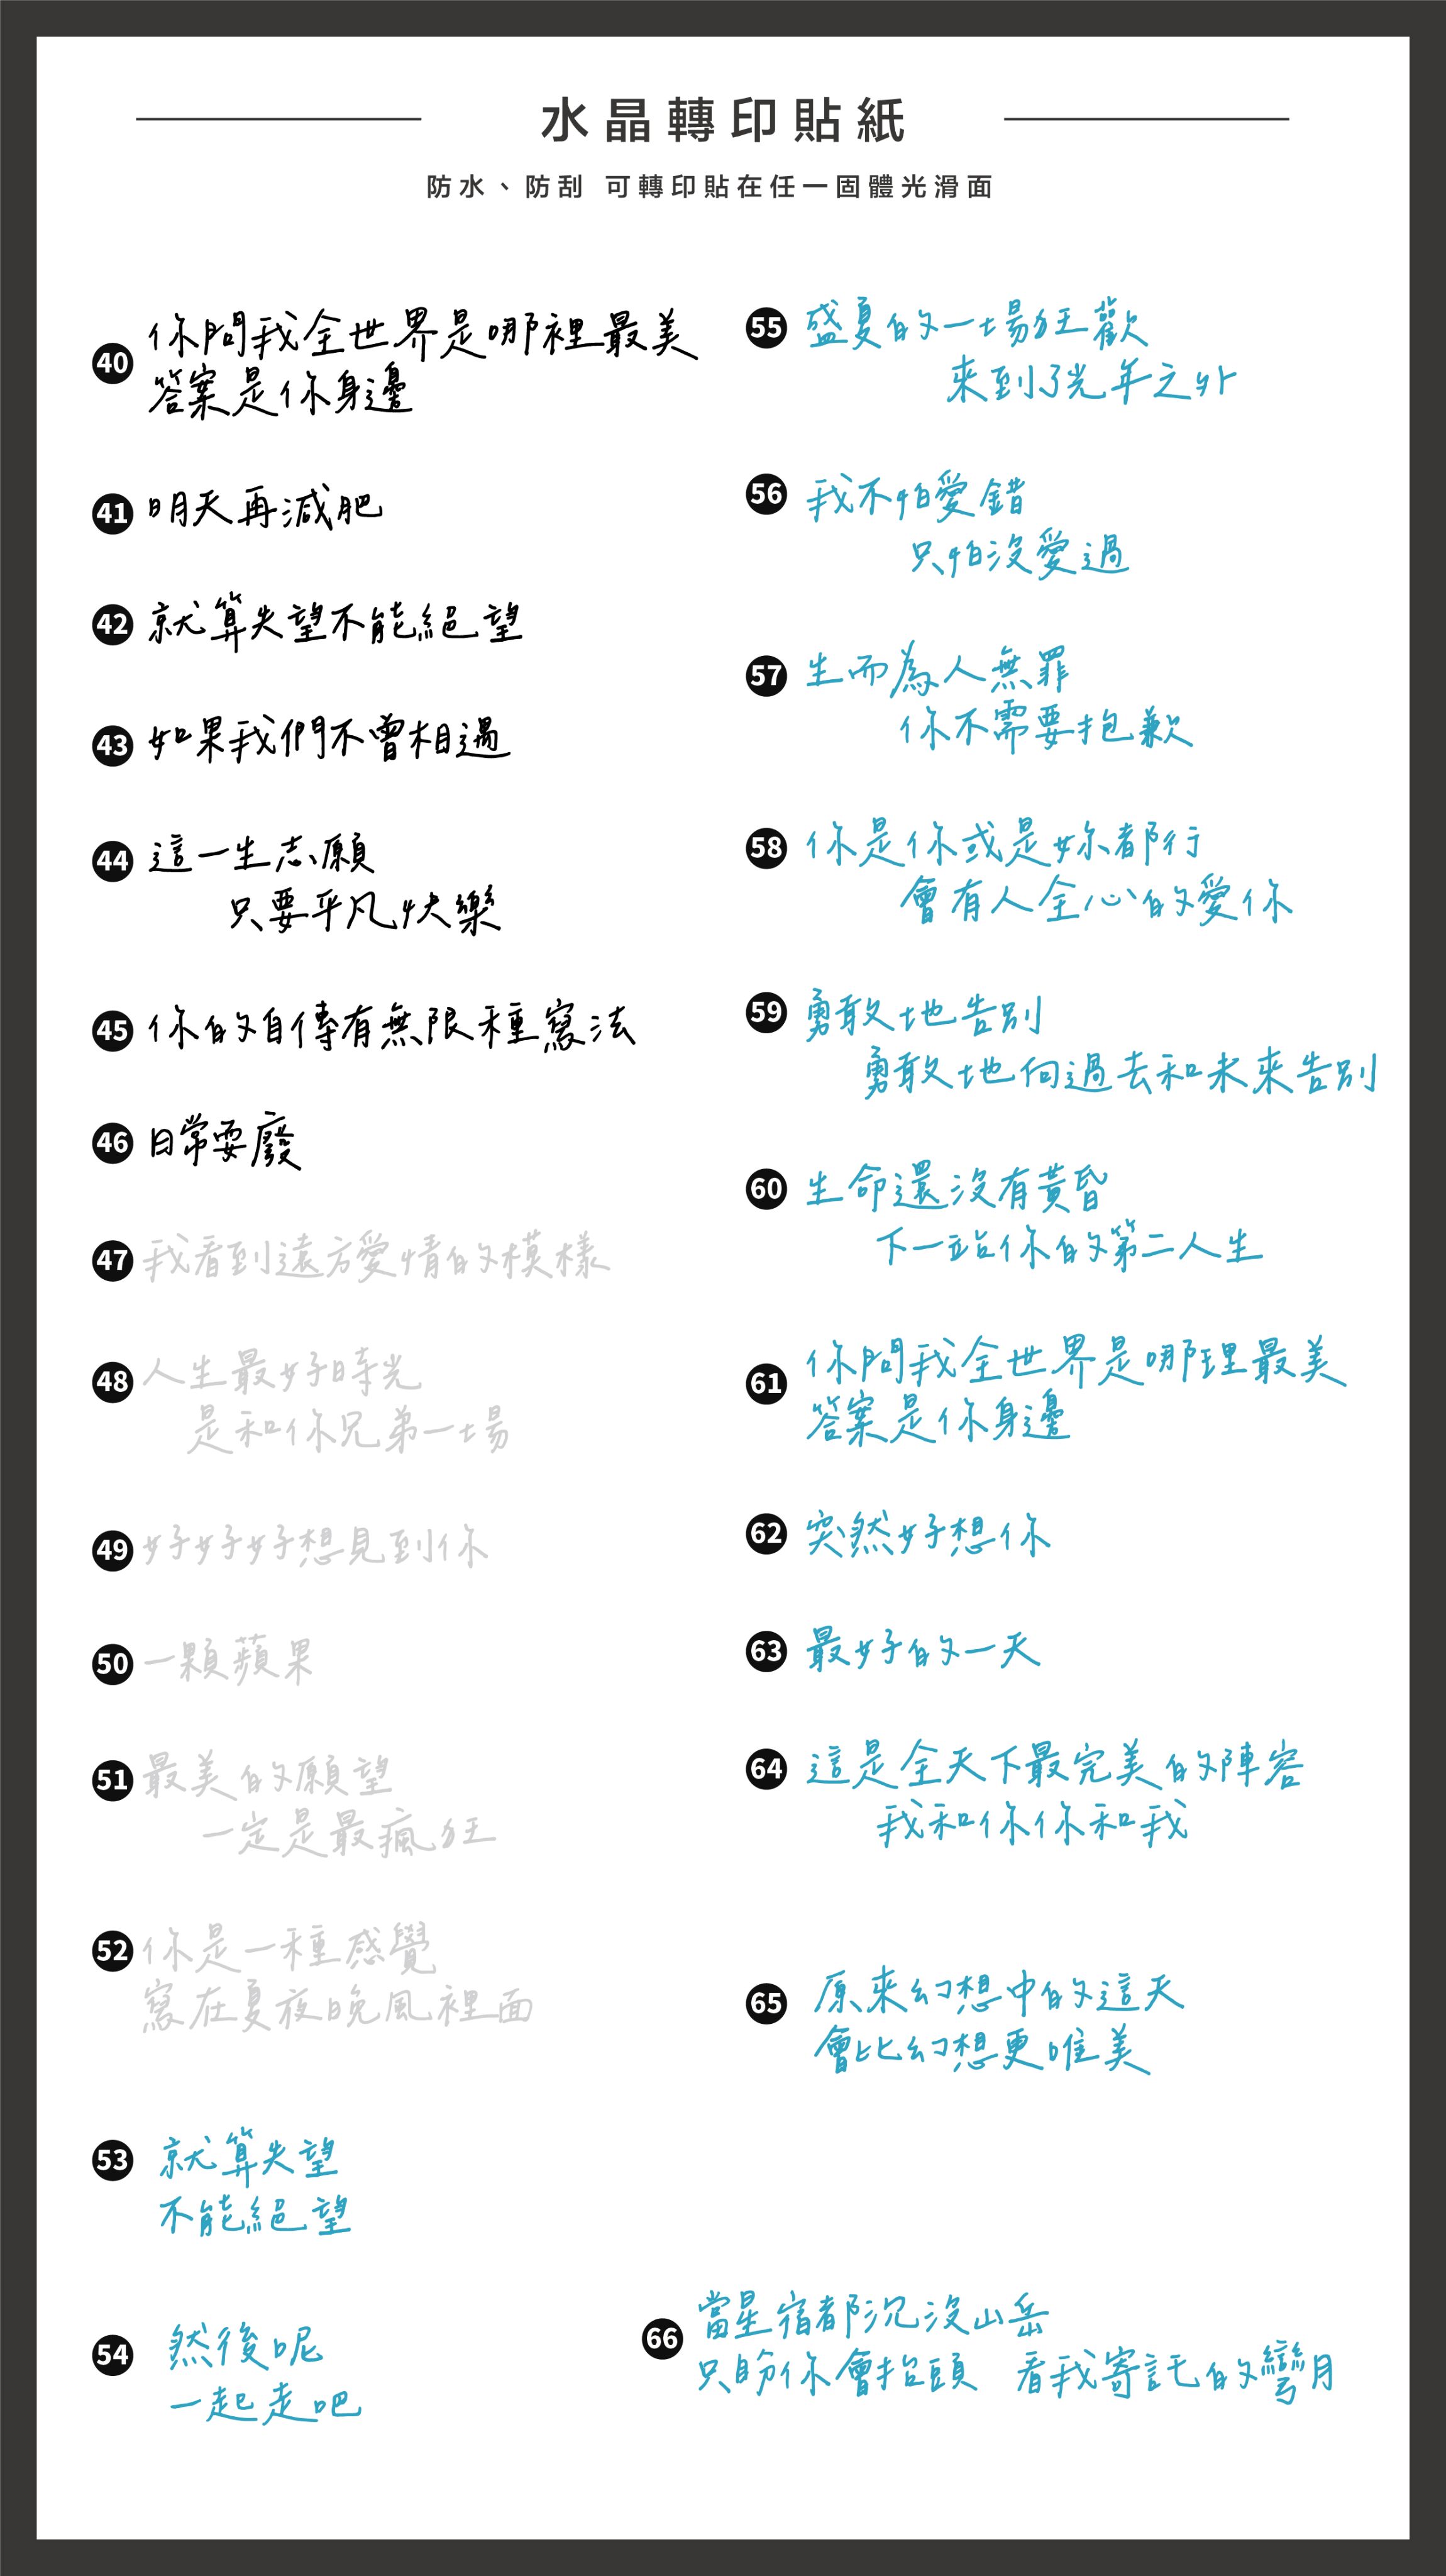 水晶轉印貼紙
防水、防刮 可轉印貼在任一固體光滑面
40 你問我全世界是哪裡最美
答案是你身邊
41 明天再減肥
42 就算失望不能絕望
43 如果我們不曾相遇
44 這一生志願
只要平凡快樂
45 你的自傳有無限種寫法
46 日常耍廢
47 我看到遠方愛情的模樣
48 人生最好時光
是和你兄弟一場
49 好好好想見到你
50 一顆蘋果
51 最美的願望
一定是最瘋狂
52 你是一種感覺
寫在夏夜晚風裡面
53 就算失望
不能絕望
54 然後呢
一起走吧
55 盛夏的一場狂歡
來到了光年之外
56 我不怕愛錯
只怕沒愛過
57 生而為人無罪
你不需要抱歉
58 你是你或是妳都行
會有人全心的愛你
59 勇敢地告別
勇敢地向過去和未來告別
60 生命還沒有黃昏
下一站你的第二人生
61 你問我全世界是哪理最美
答案是你身邊
62 突然好想你
63 最好的一天
64 這是全天下最完美的陣容
我和你你和我
65 原來幻想中的這天
會比幻想更唯美
66 當星宿都沉沒山岳
只盼你會抬頭 看我寄託的彎月